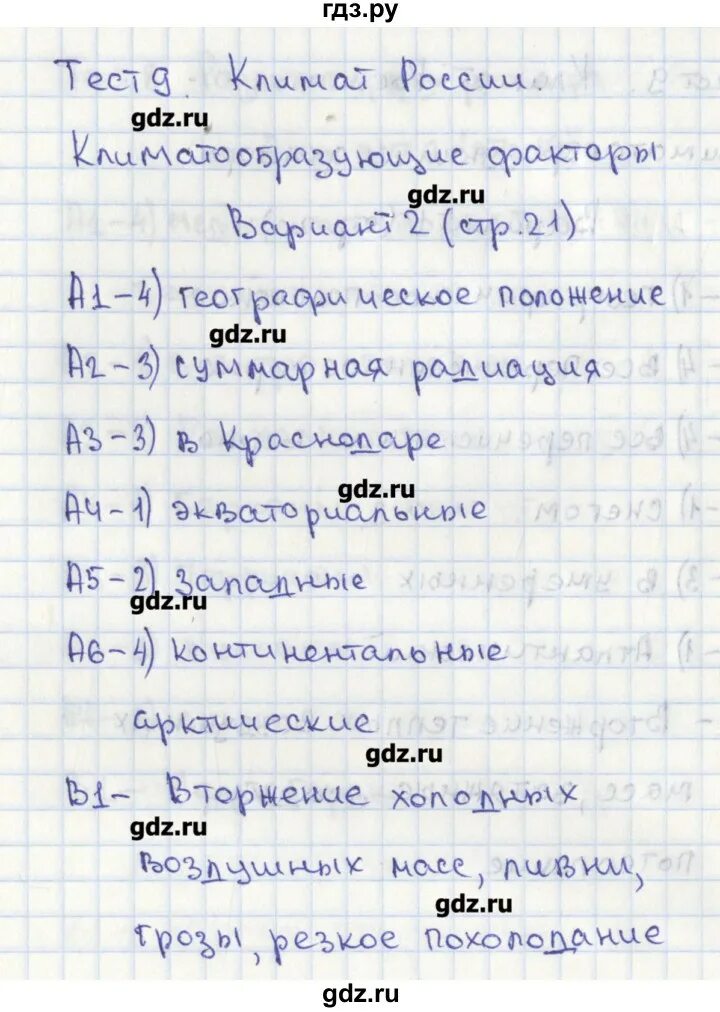 гдз.ру
Тест 9. Климат России.
gdz.ru
Климатообразующие факторы
gdz.ru
Вариант 2 (стр.21)
А1-4) географическое положение
gdz.ru
А2-3) суммарная радиация
А3-3) в Краснодаре
gdz.ru
А4-1) экваториальные
А5-2) западные
gdz.ru
А6-4) континентальные
арктические
gdz.ru
В1- Вторжение холодных
gdz.ru
воздушных масс, ливни,
gdz.ru
грозы, резкое похолодание
gdz.ru